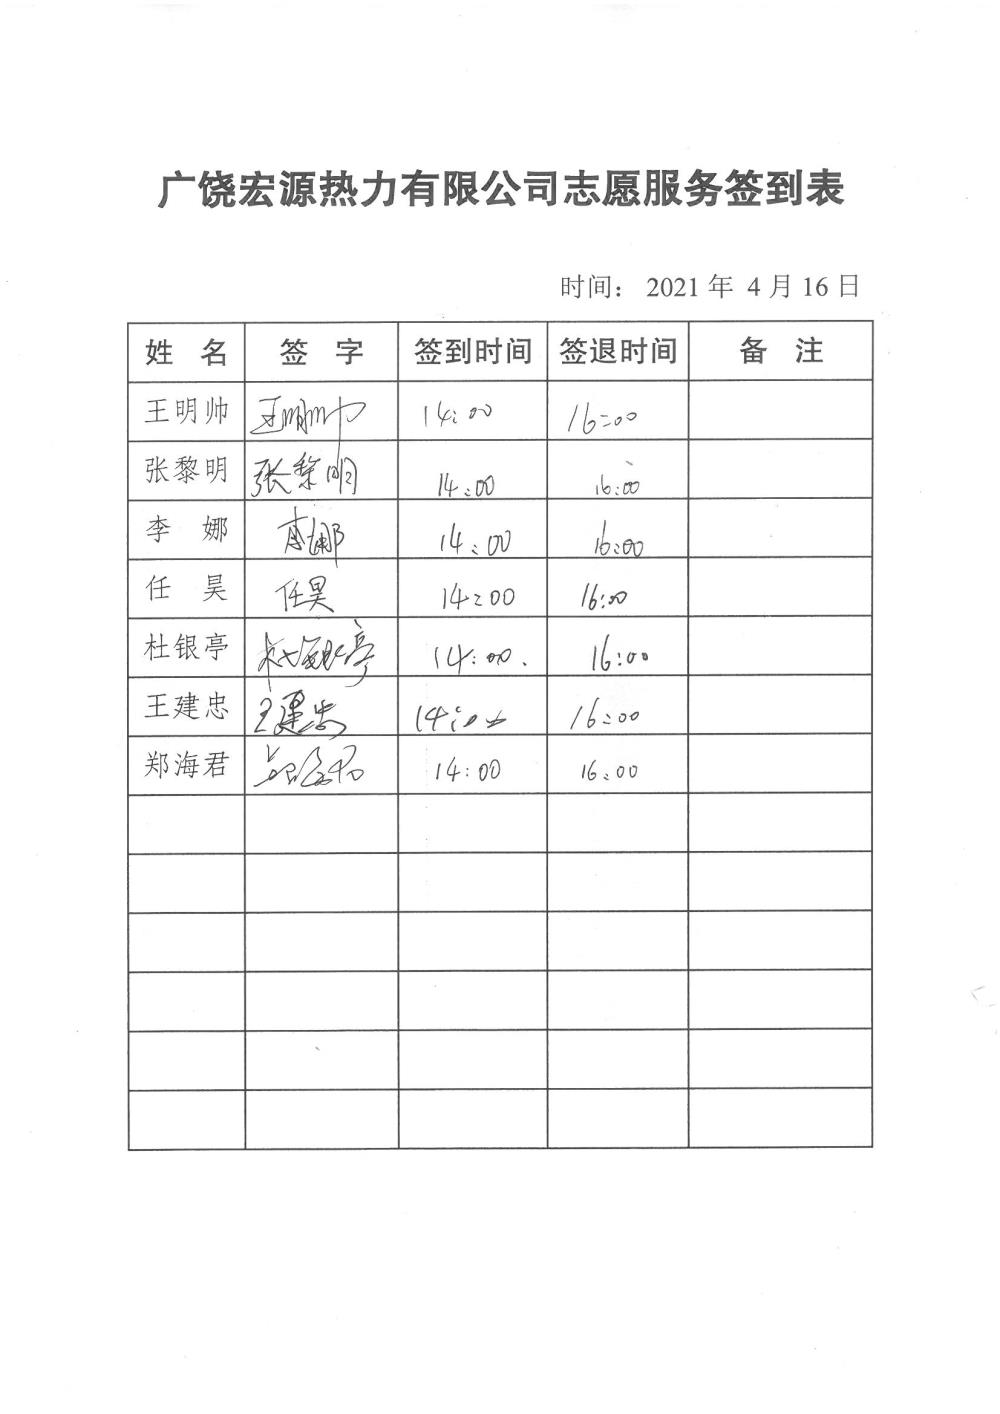 广饶宏源热力有限公司志愿服务签到表
时间： 2021 年 4 月 16 日
姓 名 签 字 签到时间 签退时间 备 注
王明帅 王明帅 14:00 16:00
张黎明 张黎明 14:00 16:00
李 娜 李娜 14:00 16:00
任 昊 任昊 14:00 16:00
杜银亭 杜银亭 14:00. 16:00
王建忠 王建忠 14:00 16:00
郑海君 14:00 16:00